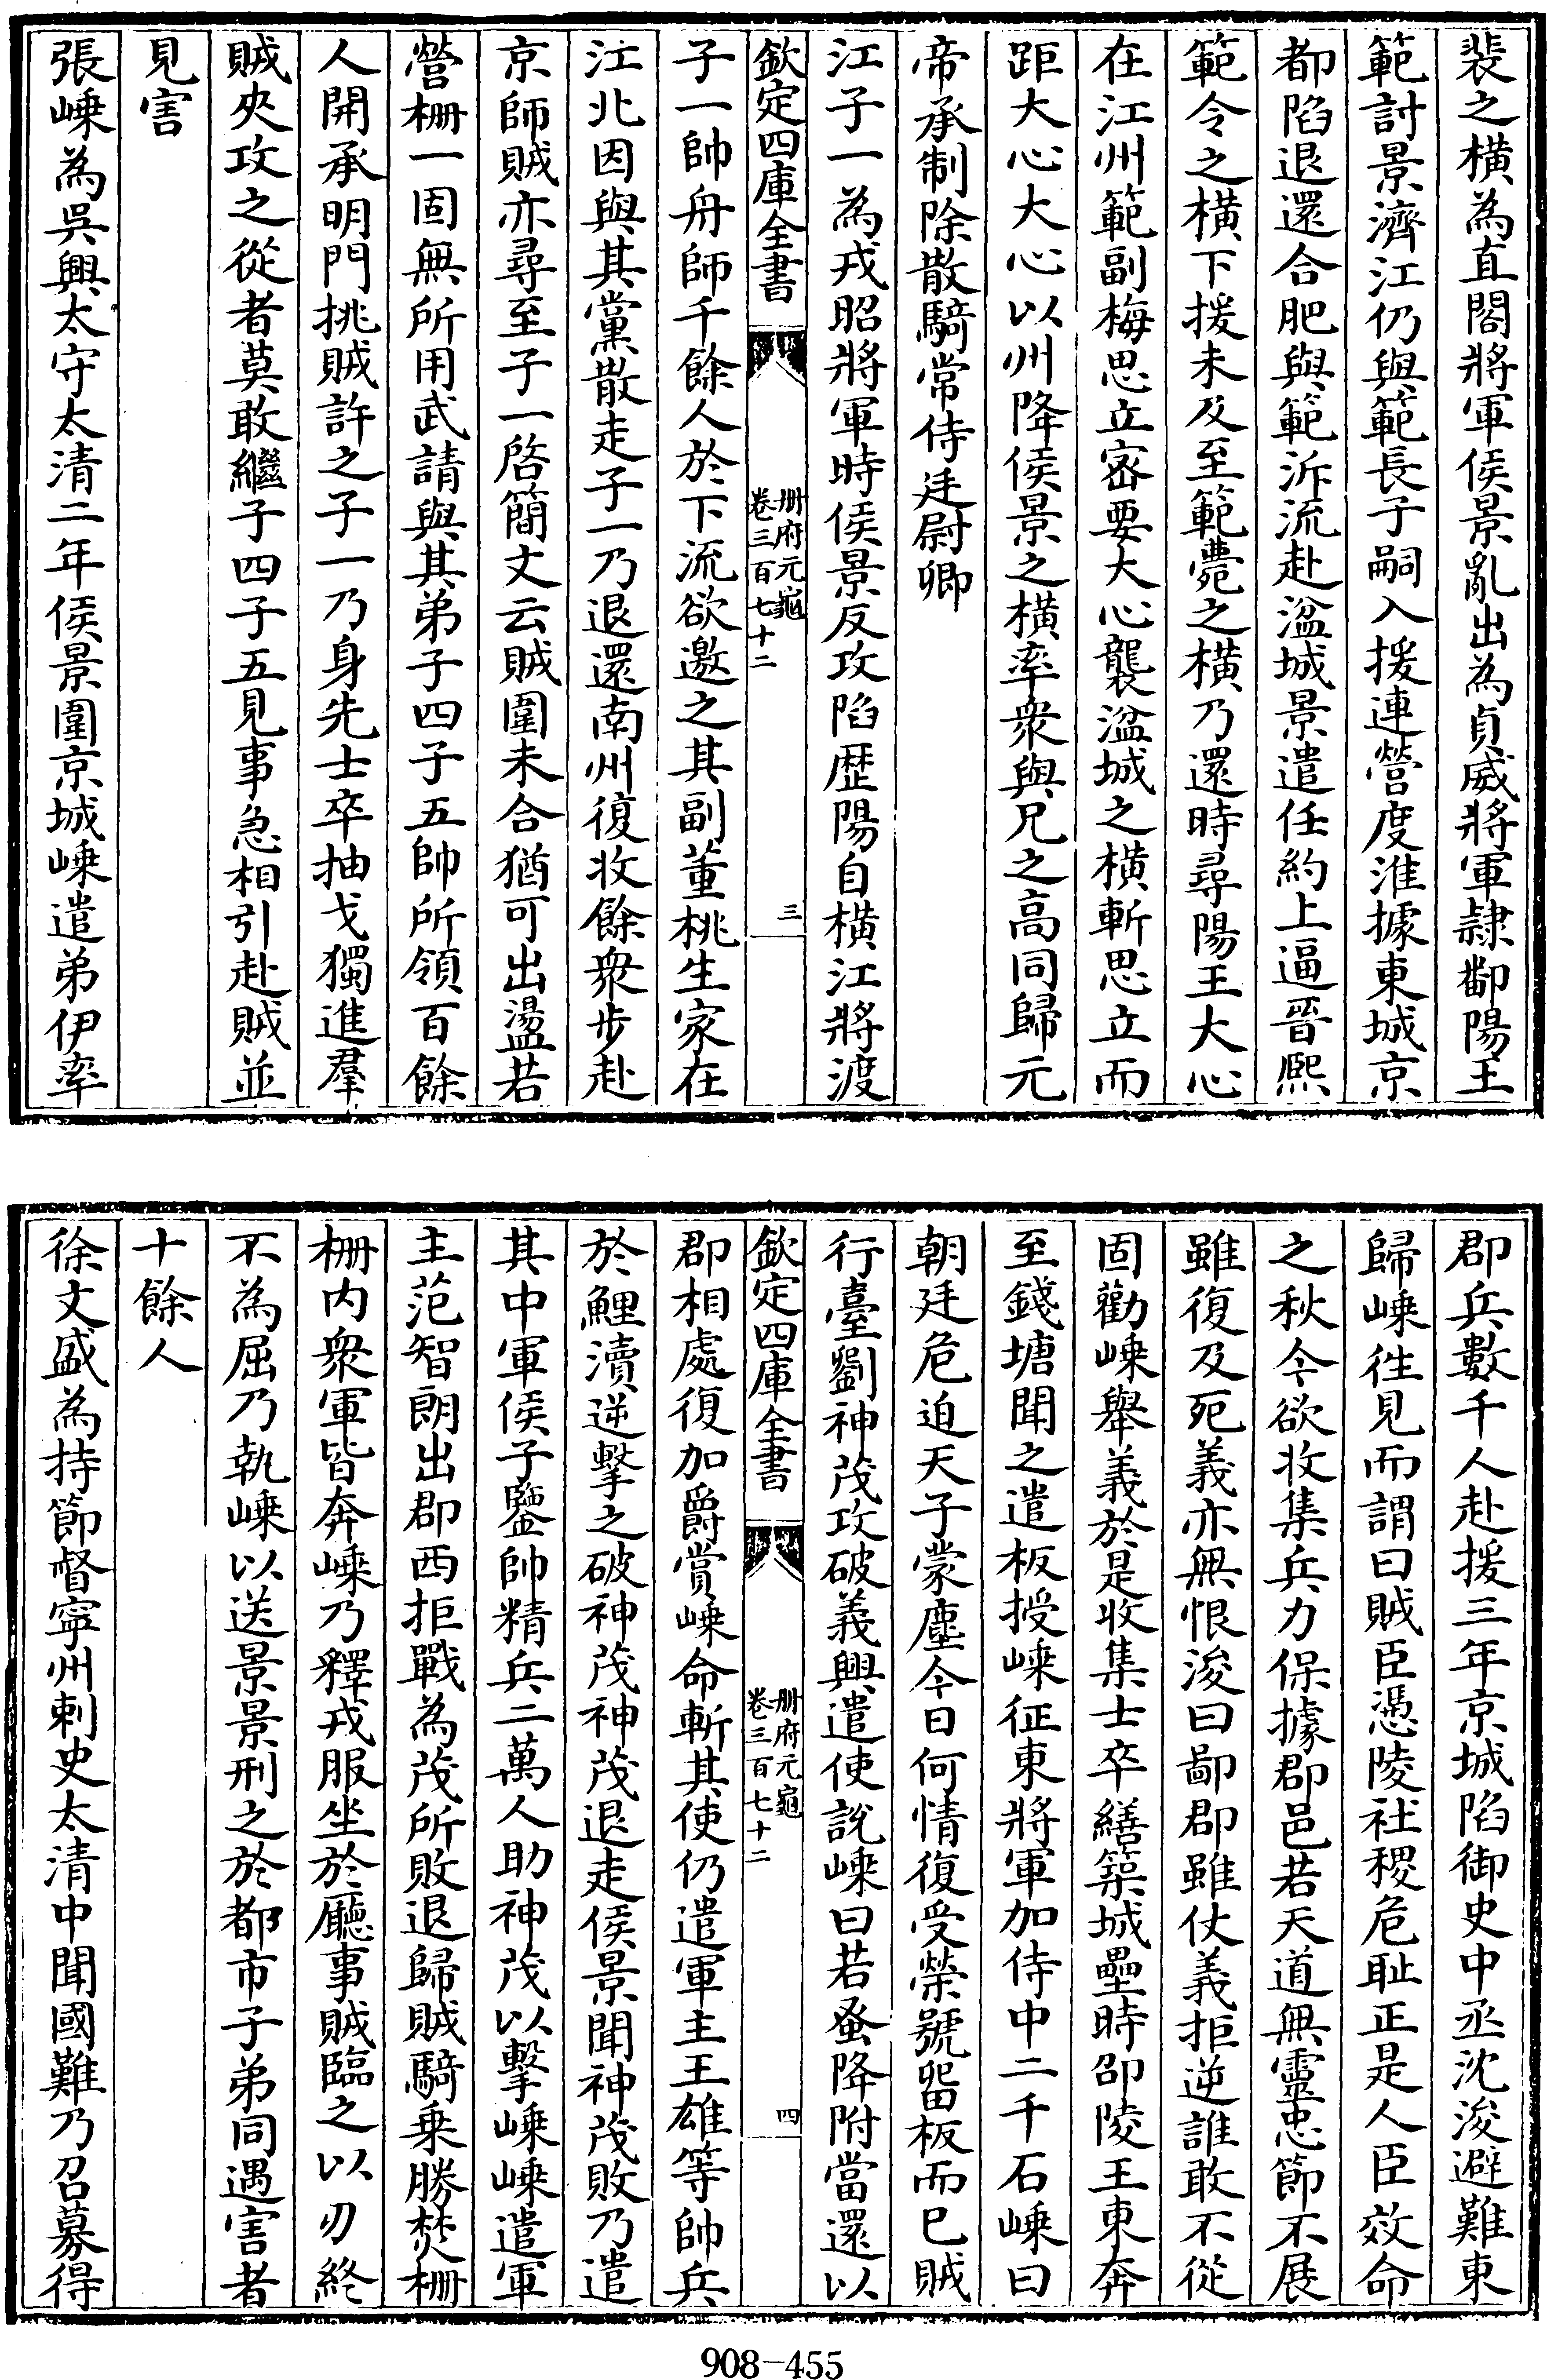 裴之橫為直閤將軍侯景亂出為貞威將軍隷鄱陽王
範討景濟江仍與範長子嗣入援連營度淮據東城京
都陷退還合肥與範泝流赴湓城景遣任約上逼晉熙
範令之橫下援未及至範薨之橫乃還時尋陽王大心
在江州範副梅思立宻要大心襲湓城之橫斬思立而
距大心大心以州降侯景之橫率衆與兄之高同歸元
帝承制除散騎常侍廷尉卿
江子一為戎昭將軍時侯景反攻陷歴陽自橫江將渡
欽定四庫全書
冊府元龜
卷三百七十二
三
子一帥舟師千餘人於下流欲邀之其副董桃生家在
江北因與其黨散走子一乃退還南州復收餘衆步赴
京師賊亦尋至子一啓簡文云賊圍未合猶可出盪若
營栅一固無所用武請與其弟子四子五帥所領百餘
人開承明門挑賊許之子一乃身先士卒抽戈獨進羣
賊夾攻之從者莫敢繼子四子五見事急相引赴賊並
見害
張嵊為吳興太守太清二年侯景圍京城嵊遣弟伊率
郡兵數千人赴援三年京城陷御史中丞沈浚避難東
歸嵊往見而謂曰賊臣憑陵社稷危恥正是人臣效命
之秋今欲收集兵力保據郡邑若天道無靈忠節不展
雖復及死義亦無恨浚曰鄙郡雖仗義拒逆誰敢不從
固勸嵊舉義於是收集士卒繕築城壘時邵陵王東奔
至錢塘聞之遣板授嵊征東將軍加侍中二千石嵊曰
朝廷危迫天子蒙塵今日何情復受榮號留板而已賊
行臺劉神茂攻破義興遣使説嵊曰若蚤降附當還以
欽定四庫全書
冊府元龜
卷三百七十二
四
郡相處復加爵賞嵊命斬其使仍遣軍主王雄等帥兵
於鯉瀆逆擊之破神茂神茂退走侯景聞神茂敗乃遣
其中軍侯子鑒帥精兵二萬人助神茂以擊嵊嵊遣軍
主范智朗出郡西拒戰為茂所敗退歸賊騎乗勝焚栅
栅内衆軍皆奔嵊乃釋戎服坐於廳事賊臨之以刃終
不為屈乃執嵊以送景景刑之於都市子弟同遇害者
十餘人
徐文盛為持節督寧州刺史太清中聞國難乃召募得
908-455